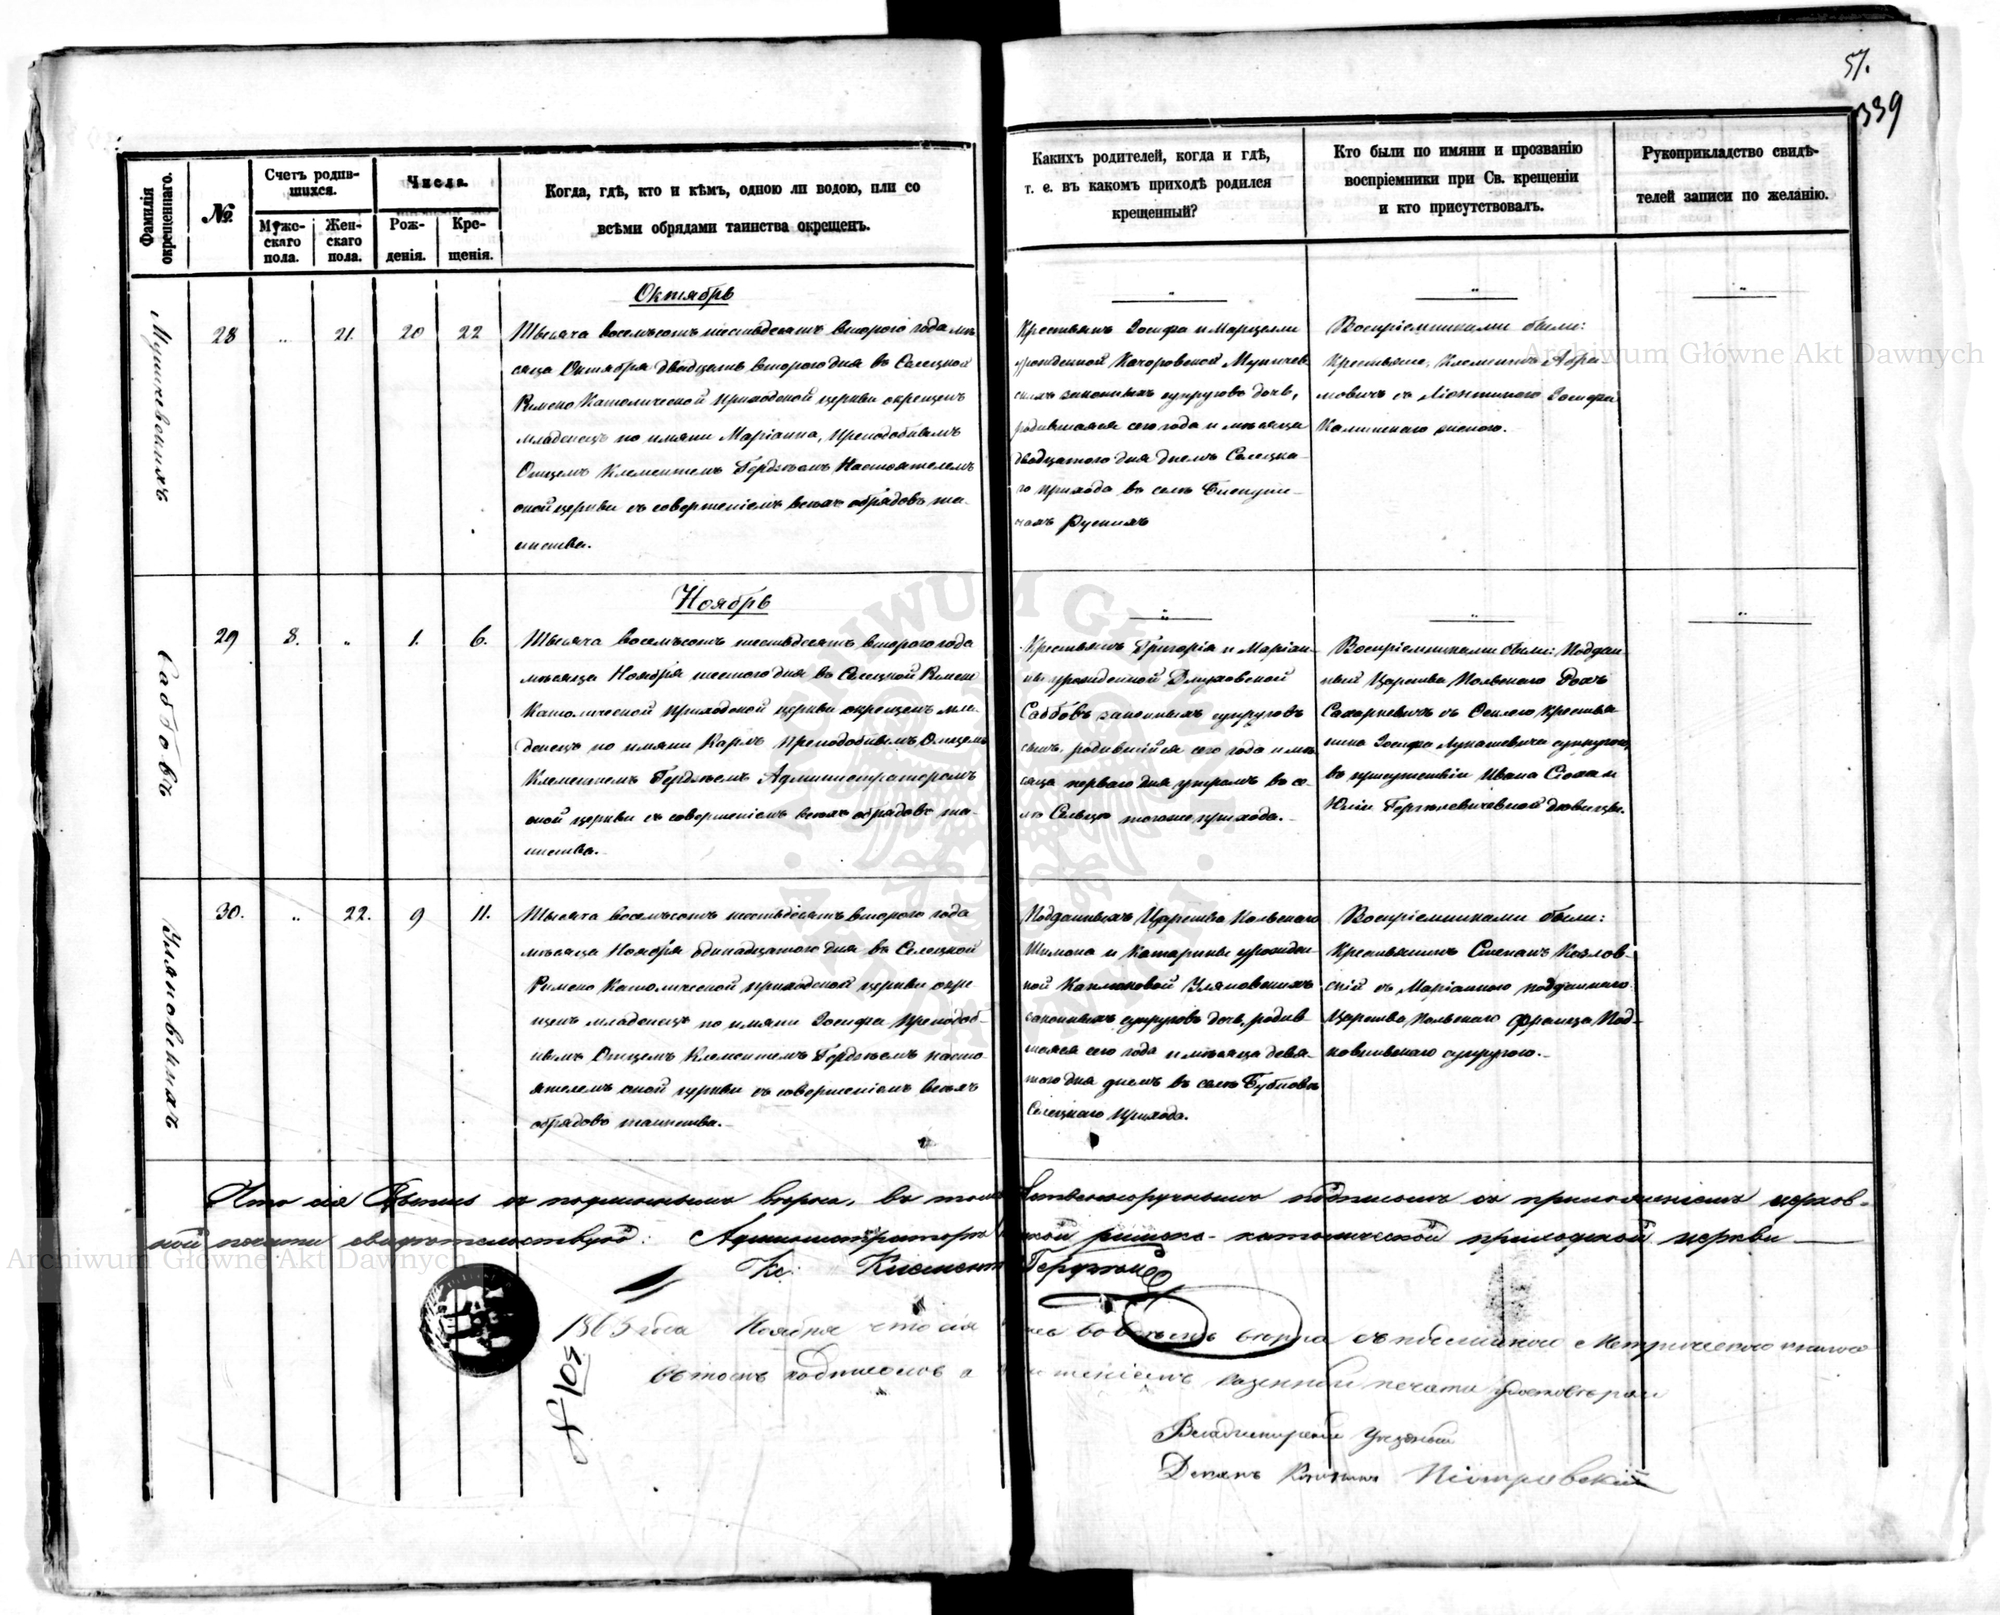 51.
339
Фамилія окрещеннаго.
№.
Счетъ родив-
шихся.
Мужс-
скаго
пола.
Жен-
скаго
пола.
Числа.
Рож-
денія.
Кре-
щенія.
Когда, гдѣ, кто и кѣмъ, одною ли водою, или со
всѣми обрядами таинства окрещенъ.
Какихъ родителей, когда и гдѣ,
т. е. въ какомъ приходѣ родился
крещенный?
Кто были по имяни и прозванію
воспріемники при Св. крещеніи
и кто присутствовалъ.
Рукоприкладство свидѣ-
телей записи по желанію.
Октябрь
28 „ 21. 20 22
Тысяча восемьсотъ шестьдесятъ втораго года мѣ
сяца Октября двадцать втораго дня въ Селецкой
Римско Католической приходской церкви окрещенъ
младенецъ по имяни Маріанна, Преподобнымъ
Отцемъ Клементемъ Настоятелемъ
оной церкви съ совершеніемъ всѣхъ обрядовъ та-
инства.
Крестьянъ Іосифа и Марцелли
урожденной Качоровской
законныхъ супруговъ дочь,
родившаяся сего года и мѣсяца
двадцатаго дня днемъ Селецка-
го прихода въ селѣ
Рускихъ
Воспріемниками были:
Крестьяне, Клементъ Абра-
мовичъ съ Іосифа
Калинскаго женою.
Ноябрь
Саббовъ
29 8. „ 1. 6.
Тысяча восемьсотъ шестьдесятъ втораго года
мѣсяца Ноября шестого дня въ Селецкой Римско
Католической приходской церкви окрещенъ мла-
денецъ по имяни Карлъ Преподобнымъ Отцемъ
Клементемъ Администраторомъ
оной церкви съ совершеніемъ всѣхъ обрядовъ та-
инства.
Крестьянъ Григорія и Маріан-
ны урожденной Длуховской
Саббовъ законныхъ супруговъ
сынъ, родившійся сего года и мѣ
сяца перваго дня утромъ въ се-
лѣ Сельцо того же прихода.
Воспріемниками были: Поддан-
ный Царства Польскаго Рохъ
крестья
нина Іосифа Лукашевича супругою,
въ присутствіи Ивана и
Юліи дѣвицы.
Уляновскихъ
30. „ 22. 9 11.
Тысяча восемьсотъ шестьдесятъ втораго года
мѣсяца Ноября одинадцатого дня въ Селецкой
Римско Католической приходской церкви окре-
щенъ младенецъ по имяни Іосифа Преподоб-
нымъ Отцемъ Клементемъ насто-
ятелемъ оной церкви съ совершеніемъ всѣхъ
обрядовъ таинства.
Подданныхъ Царства Польскаго
Шимона и Катарины урожден
ной Каплоновой Уляновскихъ
законныхъ супруговъ дочь, родив-
шаяся сего года и мѣсяца девя-
того дня днемъ въ селѣ Бубновѣ
Селецкаго прихода.
Воспріемниками были:
Крестьянинъ Степанъ Козлов-
скій съ Маріанною подданнаго
Царства Польскаго Франца
супругою.
Что сія съ подлиннымъ вѣрна, въ томъ собственноручнымъ подписомъ съ приложеніемъ церков-
ной печати свидѣтельствую: Администраторъ римско-католической приходской церкви
Кс. Клементъ
1863 года Ноября что сія вѣрна съ подлинною Метрическою книгою
въ томъ подписомъ и казенной печати удостовѣряю
Владимирскій Уѣздный
Деканъ Піотровскій
Archiwum Główne Akt Dawnych
Archiwum Główne Akt Dawnych